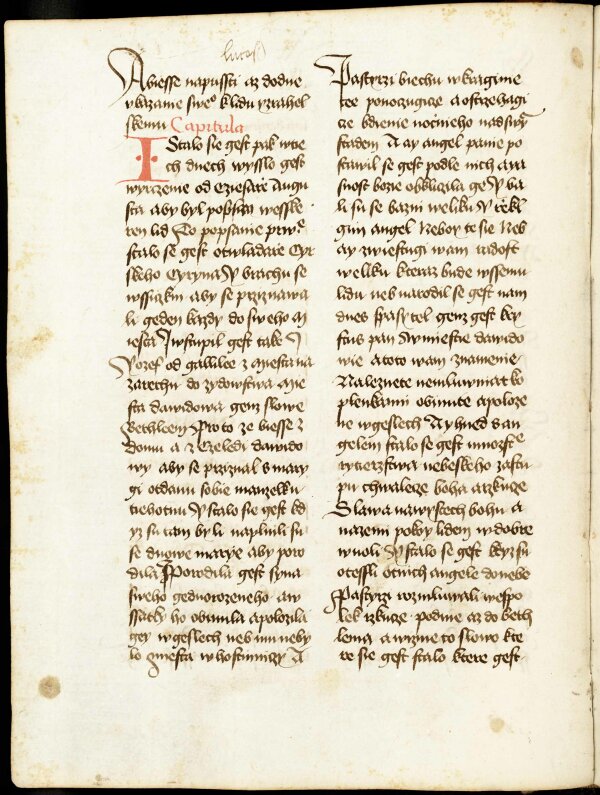 lucas
A biesse napussti az dodne
vkazanie sweo k lidu yzrahel
skemu Capitula
I Stalo sie gest pak w tie
ch dnech wysslo gest
wyrzcenie od Cziesarze Augu
sta aby byl popsan wesske
ren lid To popsanie prwe
stalo se gest ot wladarze Cyr
skeho Cyryna Y brachu se
wssiczkni aby se przizna wa
li geden kazdy do sweho m
iesta I wstupil gest take
Yozef od gallilee z miesta na
zarethu do zydowstwa mie
sta dawidowa genz slowe
Bethleem Proto ze biesse z
domu a z czeledi dawido
wy aby se prziznal s mary
gi otdanu sobie manzelku
tiehotnu Y stalo sie gest kd
yz su tam byli naplnili su
se dnowe marye aby poro
dila Y Porodila gest syna
sweho gednorozeneho a w
ssaty ho obinula a polozila
gey w geslech neb mu neby
lo miesta w hostinnici A
Pastyrzi biechu w kragine
tee ponoczugicze a ostrzehagi
cze bdienie nocnieho nad swy
stadem A ay angel panie po
stawil se gest podle nich a ya
snost bozie obklicila ge Y ba
li su se bazni weliku Y rzekl
gim angel Neboy te sie Neb
ay zwiestugi wam radost
weliku kteraz bude wssemu
lidu neb narodil se gest nam
dnes spasytel genz gest kry
stus pan w miestie dawido
wie a toto wam znamenie
Naleznete nemluwniatko
plenkami obinute a poloze
ne w geslech A yhned s an
gelem stalo se gest mnozstwe
rytierzstwa nebeskeho zastu
pu chwalicze boha a rzkucze
Slawa na wysostech bohu a
na zemi pokoy lidem w dobre
wuoli Y stalo se gest kdyz su
otessli ot nich angele do nebe
Pastyrzi rozmluwali wespo
lek rzkucze podme az do beth
lema a wizme to slowo kte
re sie gest stalo ktere gest